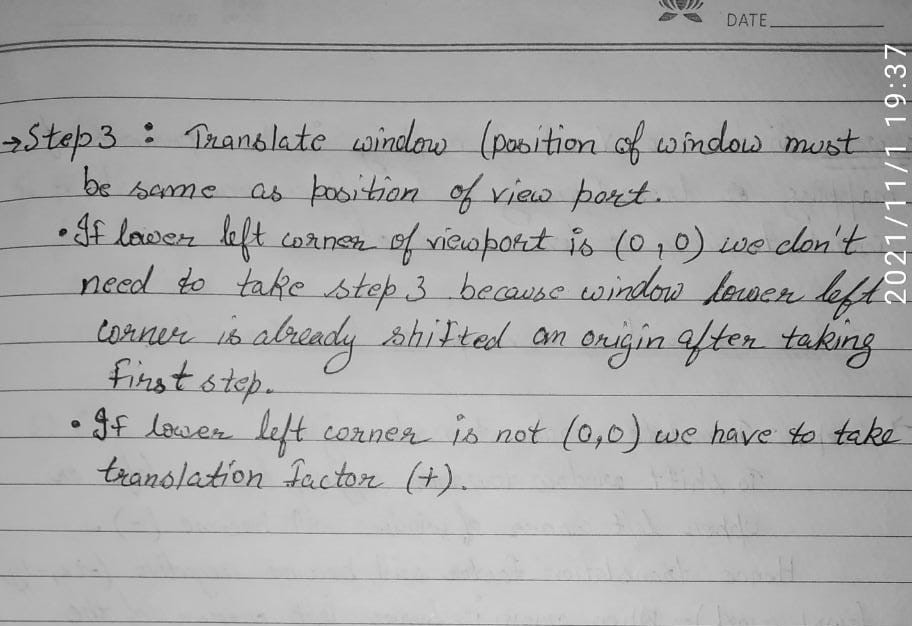 DATE
2021/11/1 19:37
→Step 3 : Translate window (position of window must
be same as position of view port.
• If lower left corner of viewport is (0,0) we don't
need to take step 3 because window lower left
corner is already shifted on origin after taking
first step.
• If lower left corner is not (0,0) we have to take
translation factor (+).